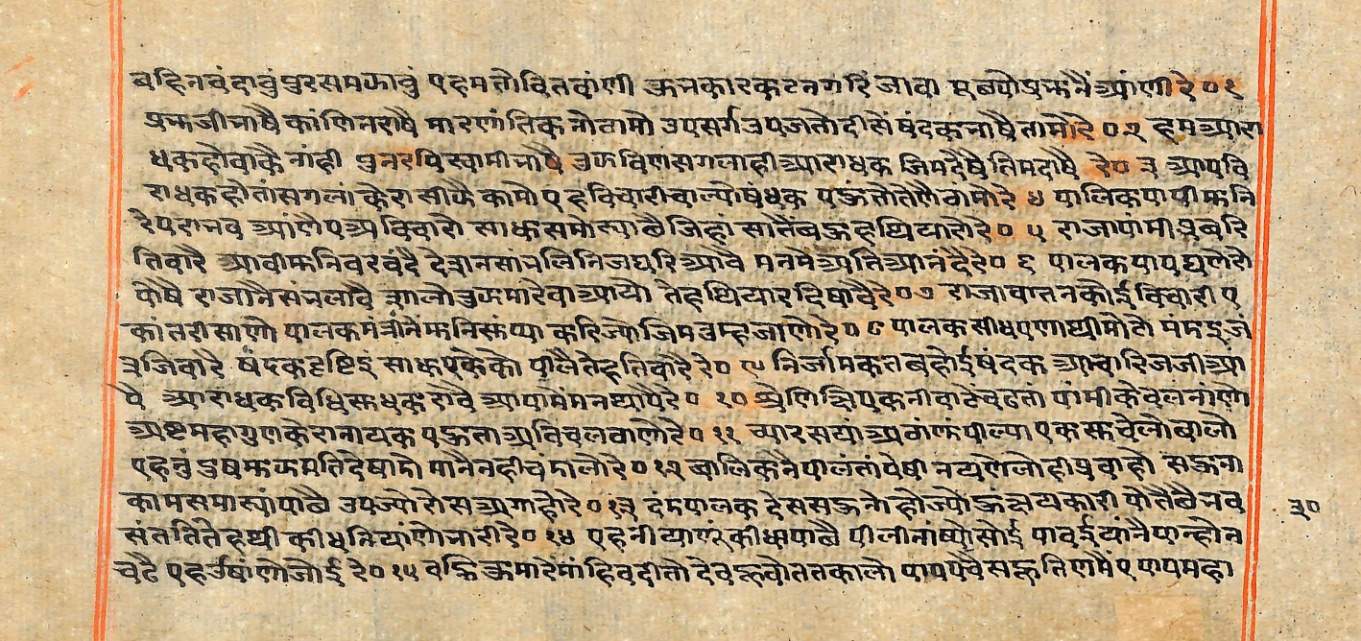 बहिनचंदावुं पुरसमऊावुं एहमतोवितवांणी ऊनकारकटनगरिं जावा प्रभुनैं आंणी रे० १
प्रभुजीभाषै कांणिनराषै मारणांतिकनोवामो उपसर्गउपजतोदीसें षंदकभाषैतामोरे० २ हमआरा
धकहोवाकै नांही पुनरविस्वामीभाषै तुऊविणसगलाहीआराधक जिमदेषैतिमदाषै रे० ३ आपवि
राधकहोतांसगलां केरा सीऊै कामो एहविचारीचाल्योषंधक पऊतोतेणैवांमोरे ४ पालिकपापीमनि
रेपरानव आंणैएअविचारो साधुसमोस्याछैजिहां सातैंबऊहथियारोरे० ५ राजापांमीप्रबरि
तिवारै आवीमुनिवरवंदै देशनसांभलिनिजघरिआवै मनमेअतिआनंदैरे० ६ पालकपापघणेरो
पोषै राजानैसंभलावै शालोतुऊमारेवाआयो तेहथियारदिषावैरे० ७ राजावातनकोईविचारी ए
कांतरीसाणो पालकमंत्रीनेमुनिसूंप्या करिज्योजिमतुम्हजाणोरे० ८ पालकसीधपणाथीमोटो मंमइजं
त्रजिवारे षंदकदृष्टिइं साधुएकेको पीलैतेहतिवारैरे० ९ निर्जामकतबहोईषंदक आचारिजजीआ
पै आराधकविधिसुधकरावै आपासंमनथापैरे० १० श्रेणिक्षिपकनीवाटेंचढतां पांमीकेवलनांणो
अष्टमहागुणकेरानायक पऊताअविचलवाणोरे० ११ च्यारसयांअठांणूंपील्या एकसुचेलोबालो
एहनुंदुषमुऊमतिदेषामो मानैनहीचंमालोरे० १२ बालिकनैपालंतांपेषी नयणेलोहीप्रवाहो सऊना
कामसमास्यांपाछै उपज्योरोसअगाहोरे० १३ दंमपालक देससऊनो होज्योऊंक्षयकारी पोतैछैभव
संततितेहथी कीधुनियांणोभारीरे० १४ एहनीयाणूंकीधापाछै पीलीनांष्योसोई पावईयांनैपान्होन
चढै एहउषांणोजोई रे० १५ वह्निऊमारेमांहिवदीतो देवऊवोततकालो पापपचैसऊतिणमैंए पापमहा
३०